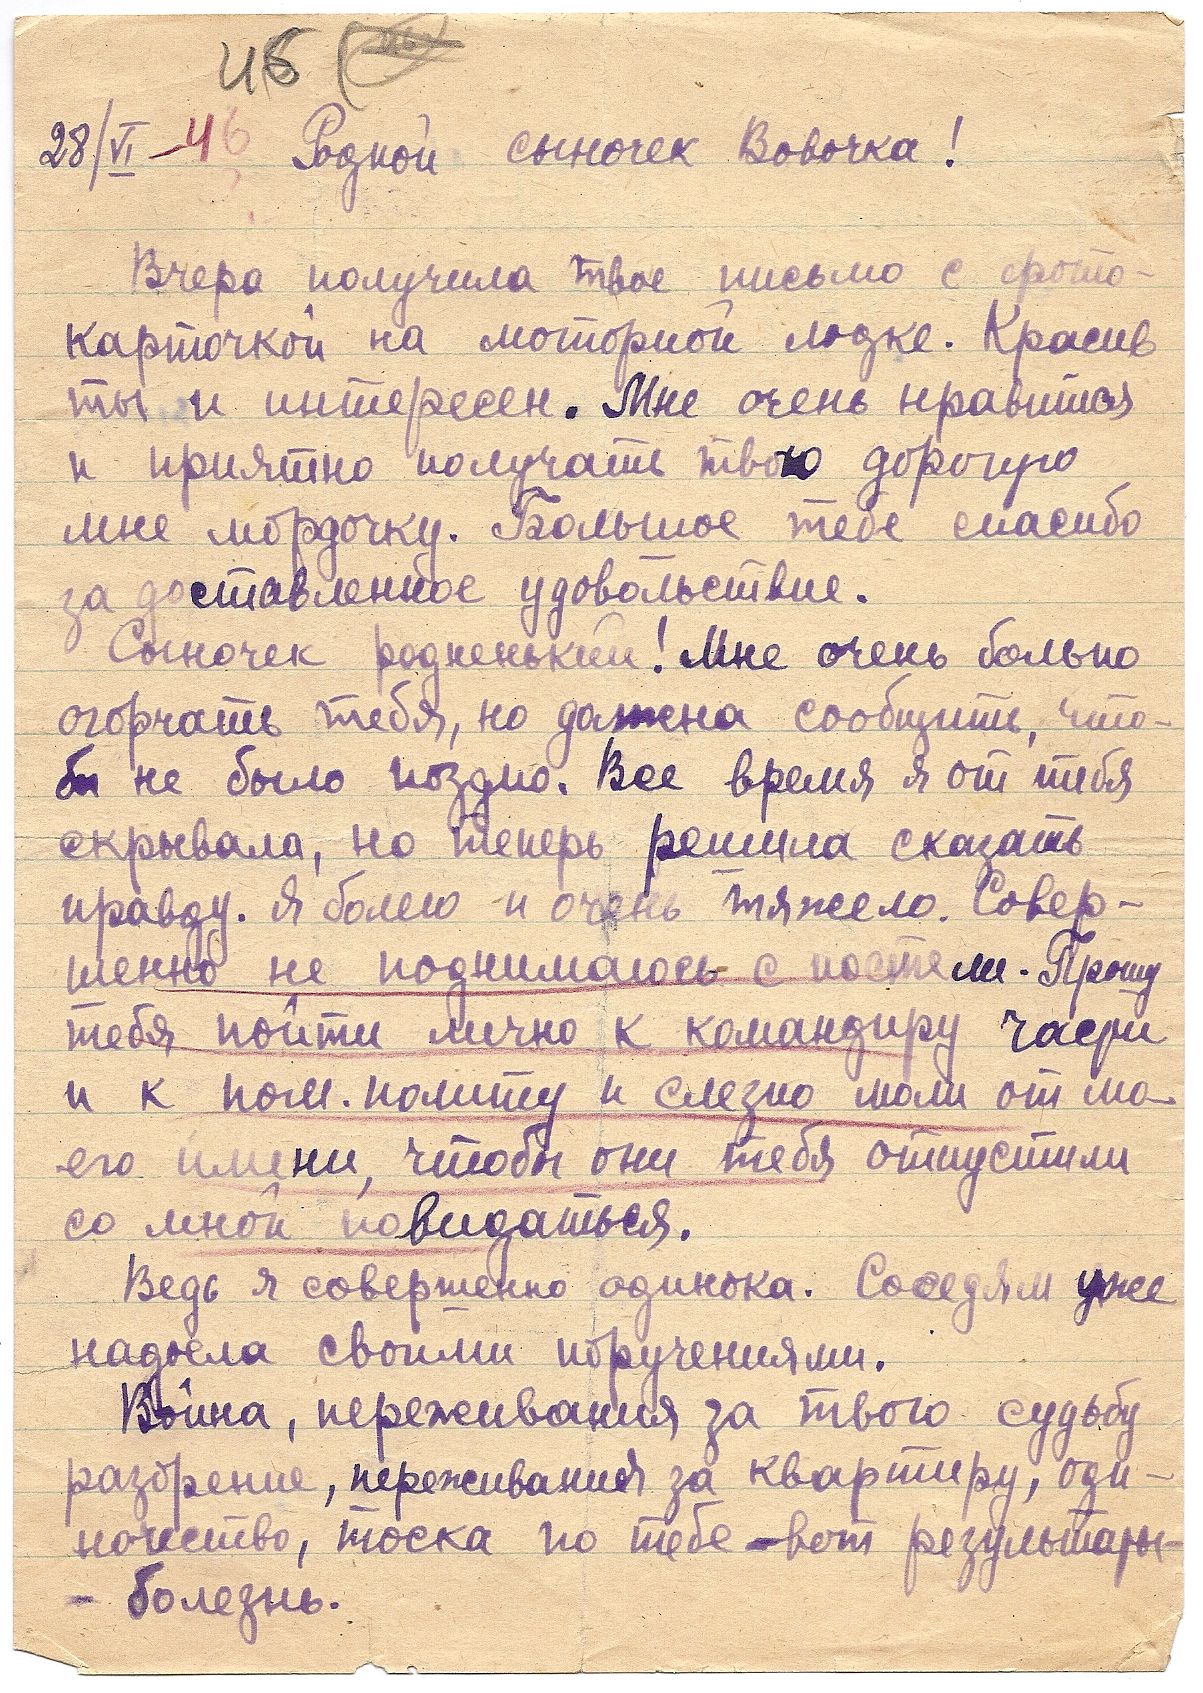 46
28/VI-46 Родной сыночек Вовочка!
Вчера получила твое письмо с фото-
карточкой на моторной лодке. Красив
ты и интересен. Мне очень нравится
и приятно получать твою дорогую
мне мордочку. Большое тебе спасибо
за доставленное удовольствие.
Сыночек родненький! Мне очень больно
огорчать тебя, но должна сообщить, что-
бы не было поздно. Все время я от тебя
скрывала, но теперь решила сказать
правду. Я болею и очень тяжело. Совер-
шенно не поднимаюсь с постели. Прошу
тебя пойти лично к командиру части
и к пом. политу и слезно моли от мо-
его имени, чтобы они тебя отпустили
со мной повидаться.
Ведь я совершенно одинока. Соседям уже
надоела своими поручениями.
Война, переживания за твою судьбу
разорение, переживания за квартиру, оди-
ночество, тоска по тебе - вот результаты-
- болезнь.